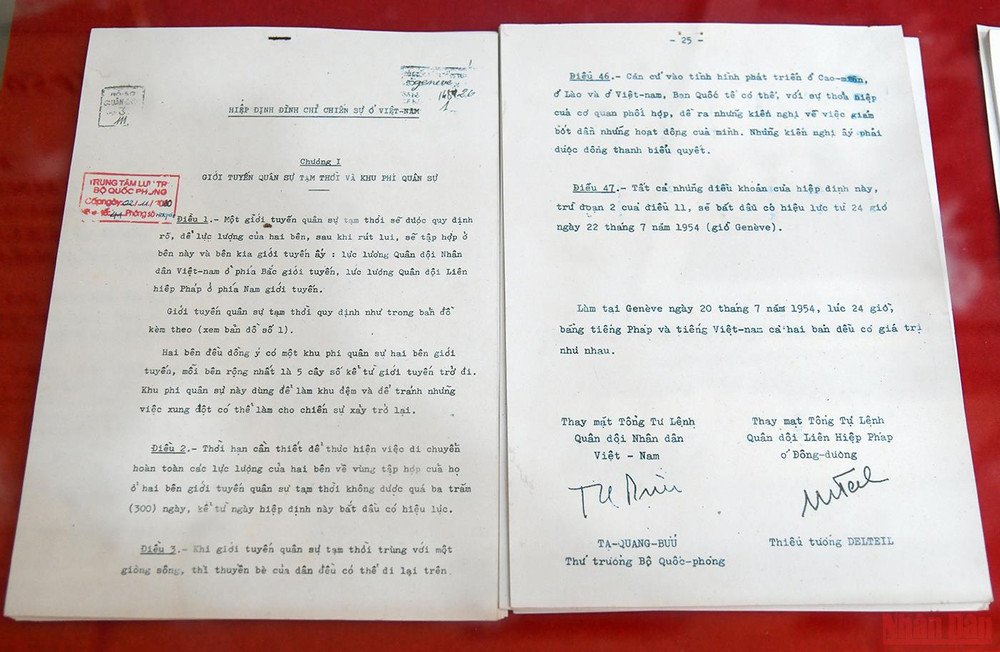 HIỆP ĐỊNH ĐÌNH CHỈ CHIẾN SỰ Ở VIỆT-NAM
Genève
1
Chương I
GIỚI TUYẾN QUÂN SỰ TẠM THỜI VÀ KHU PHI QUÂN SỰ
TRUNG TÂM LƯU TR
BỘ QUỐC PHÒNG
Điều 1.- Một giới tuyến quân sự tạm thời sẽ được quy định
rõ, để lực lượng của hai bên, sau khi rút lui, sẽ tập hợp ở
bên này và bên kia giới tuyến ấy : lực lương Quân đội Nhân
dân Việt-nam ở phía Bắc giới tuyến, lực lượng Quân đội Liên
hiệp Pháp ở phía Nam giới tuyến.
Giới tuyến quân sự tạm thời quy định như trong bản đồ
kèm theo (xem bản đồ số 1).
Hai bên đều đồng ý có một khu phi quân sự hai bên giới
tuyến, mỗi bên rộng nhất là 5 cây số kể từ giới tuyến trở đi.
Khu phi quân sự này dùng để làm khu đệm và để tránh những
việc xung đột có thể làm cho chiến sự xảy trở lại.
Điều 2.- Thời hạn cần thiết để thực hiện việc di chuyển
hoàn toàn các lực lượng của hai bên về vùng tập hợp của họ
ở hai bên giới tuyến quân sự tạm thời không được quá ba trăm
(300) ngày, kể từ ngày hiệp định này bắt đầu có hiệu lực.
Điều 3.- Khi giới tuyến quân sự tạm thời trùng với một
giòng sông, thì thuyền bè của dân đều có thể đi lại trên
- 25 -
Điều 46.- Căn cứ vào tình hình phát triển ở Cao-mên,
ở Lào và ở Việt-nam, Ban Quốc tế có thể, với sự thoả hiệp
của cơ quan phối hợp, đề ra những kiến nghị về việc giảm
bớt dần những hoạt động của mình. Những kiến nghị ấy phải
được đồng thanh biểu quyết.
Điều 47.- Tất cả những điều khoản của hiệp định này,
trừ đoạn 2 của điều 11, sẽ bắt đầu có hiệu lực từ 24 giờ
ngày 22 tháng 7 năm 1954 (giờ Genève).
Làm tại Genève ngày 20 tháng 7 năm 1954, lúc 24 giờ,
bằng tiếng Pháp và tiếng Việt-nam cả hai bản đều có giá trị
như nhau.
Thay mặt Tổng Tư Lệnh
Quân đội Nhân dân
Việt - Nam
TA-QUANG-BỬU
Thứ trưởng Bộ Quốc-phòng
Thay mặt Tổng Tư Lệnh
Quân đội Liên Hiệp Pháp
ở Đông-dương
Thiếu tướng DELTEIL
Nhân Dân